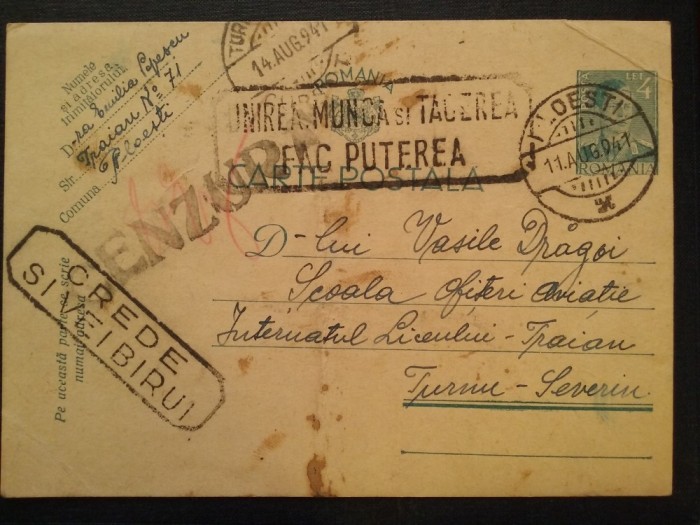 Numele
și adresa
trimițătorului
D-ra Emilia Popescu
Str. Traian No 71
Comuna Ploești
TURN
14.AUG.941
ROMANIA
UNIREA, MUNCA SI TACEREA
FAC PUTEREA
CENZURAT
CARTE POSTALA
LEI 4
ROMANIA
PLOESTI
11.AUG.941
CREDE
SI VEI BIRUI
Pe această parte se scrie
numai adresa
D-lui Vasile Drăgoi
Școala ofițeri aviație
Internatul Liceului-Traian
Turnu-Severin